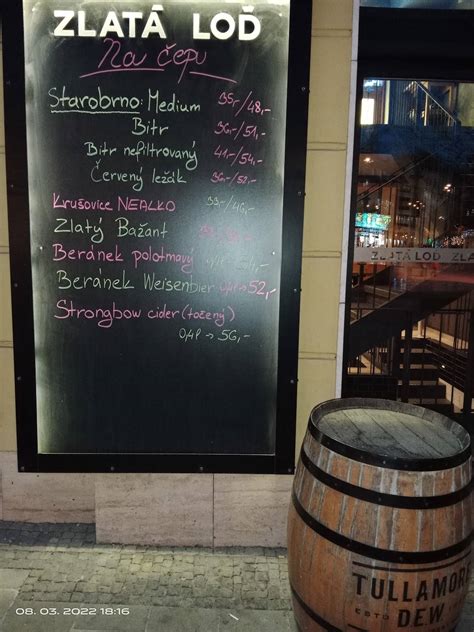 ZLATÁ LOĎ
Na čepu
Starobrno: Medium 35,-/48,-
Bitr 36,-/51,-
Bitr nefiltrovaný 41,-/54,-
Červený ležák 36,-/52,-
Krušovice NEALKO 33,-/46,-
Zlatý Bažant
Beránek polotmavý
Beránek Weisenbier 0,4l → 52,-
Strongbow cider (točený)
0,4l → 56,-
ZLATÁ LOĎ ZLA
TULLAMORE
ESTD
D.E.W.
08. 03. 2022 18:16